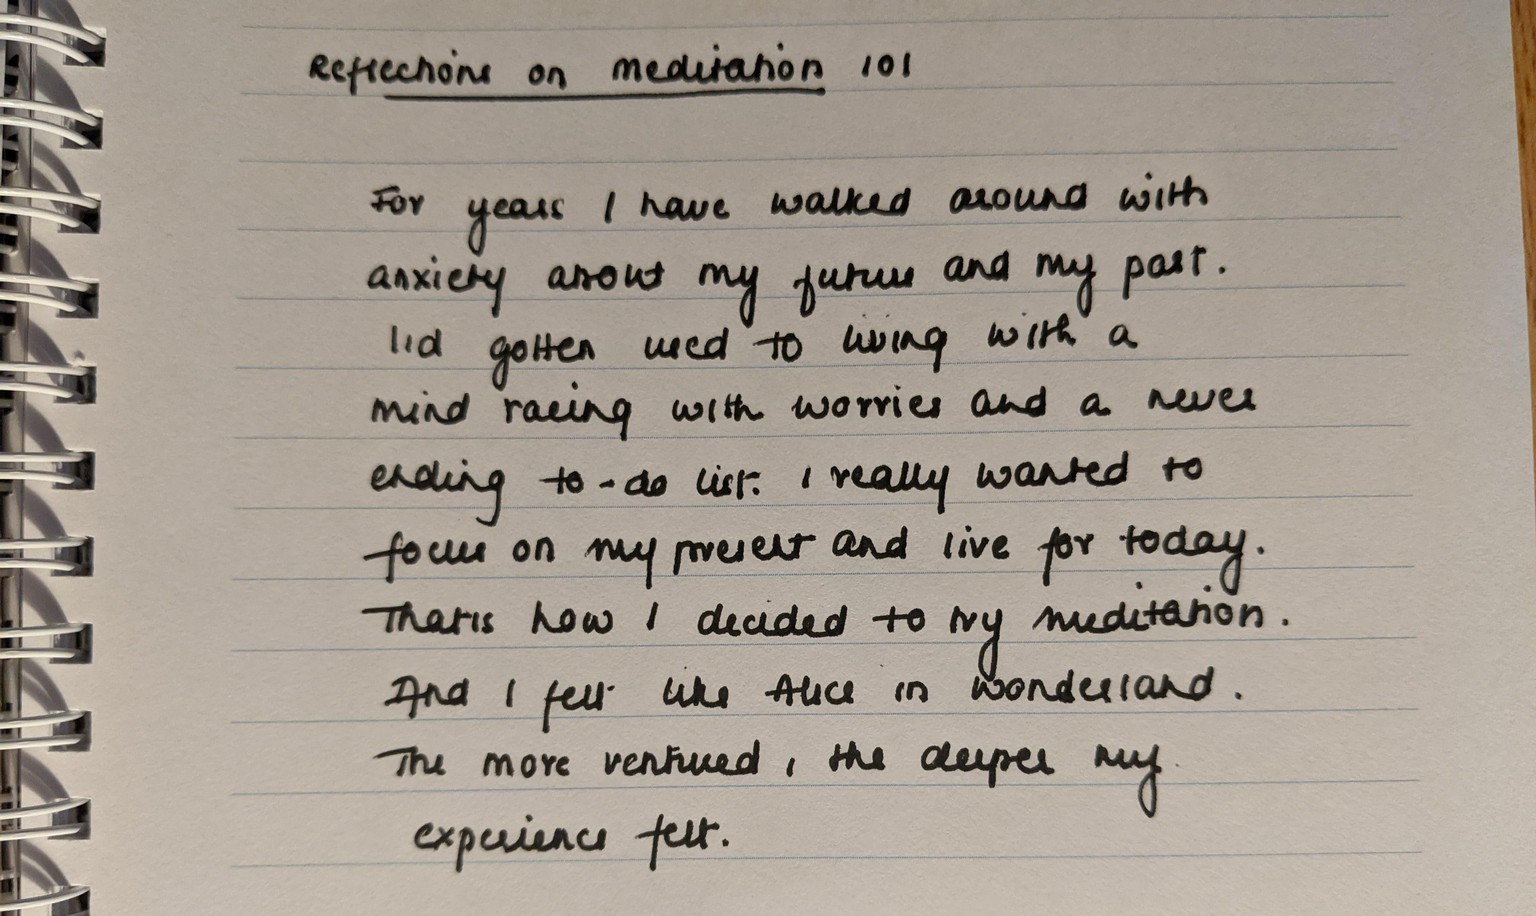 Reflections on meditation 101
For years I have walked around with
anxiety about my future and my past.
I'd gotten used to living with a
mind racing with worries and a never
ending to-do list. I really wanted to
focus on my present and live for today.
That's how I decided to try meditation.
And I felt like Alice in wonderland.
The more ventured, the deeper my
experience felt.